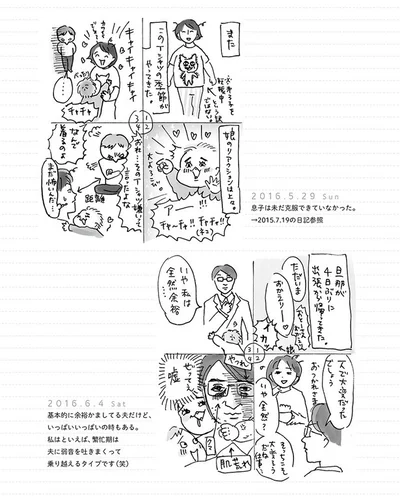 また
このTシャツの季節が
やってきた。
キャイキャイキャイ
チャチャ
娘のリアクションは上々。
大よろこび
アーー!!
チャーチャ!!チャチャ!!
(ネコ)
おれ…そのTシャツ嫌いって
言ったよな
なんで
着るのよ
まだ怖いんだ…
距離
2016.5.29 Sun
息子は未だ克服できていなかった。
→2015.7.19の日記参照
旦那が
4日ぶりに
出張から帰ってきた。
ただいま
おかえりー
いや私は
全然余裕
一人で大変だったでしょう
おつかれさま
いや全然？
そっちこそ
大変そうだね
仕事…
やつれ
やってん
嘘
肌荒れ
2016.6.4 Sat
基本的に余裕かましてる夫だけど、
いっぱいいっぱいの時もある。
私はといえば、繁忙期は
夫に弱音を吐きまくって
乗り越えるタイプです(笑)